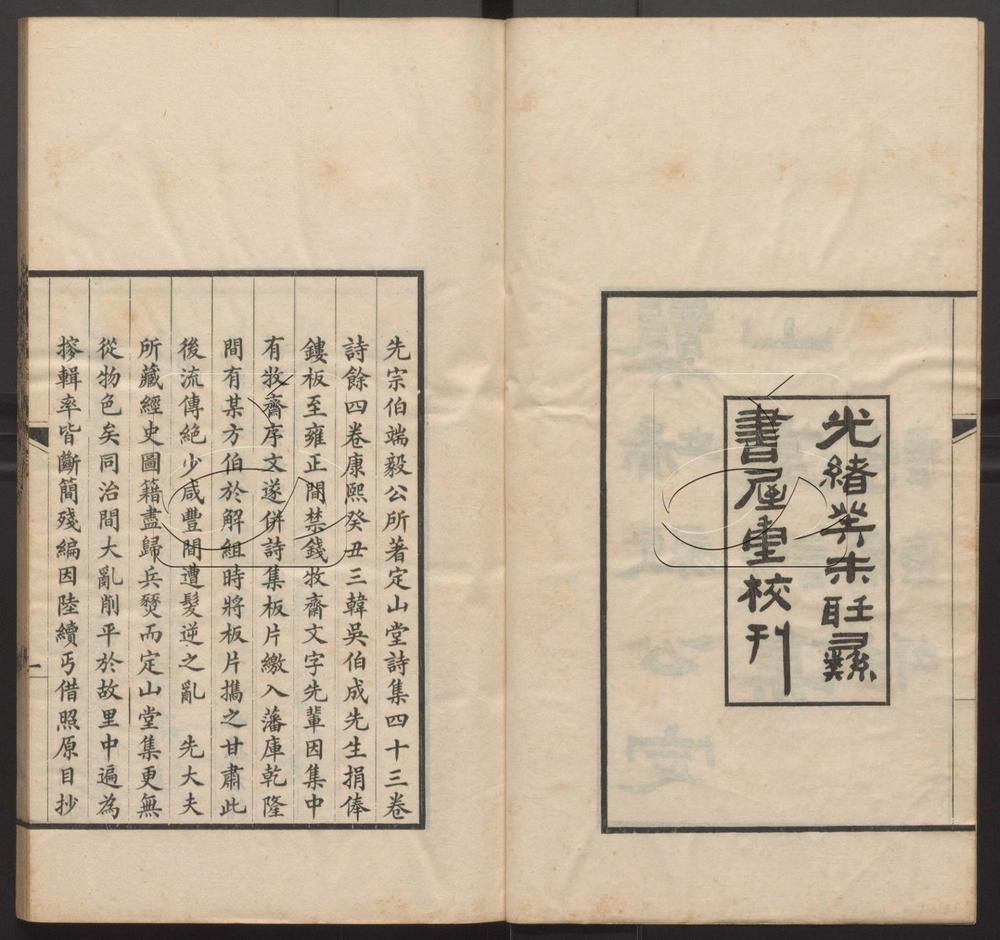 光緒癸未聽彝
書屋重校刊
先宗伯端毅公所著定山堂詩集四十三卷
詩餘四卷康熙癸丑三韓吳伯成先生捐俸
鏤板至雍正間禁錢牧齋文字先輩因集中
有牧齋序文遂併詩集板片繳入藩庫乾隆
間有某方伯於解組時將板片攜之甘肅此
後流傳絕少咸豐間遭髮逆之亂　先大夫
所藏經史圖籍盡歸兵燹而定山堂集更無
從物色矣同治間大亂削平於故里中遍為
搜輯率皆斷簡殘編因陸續丐借照原目抄